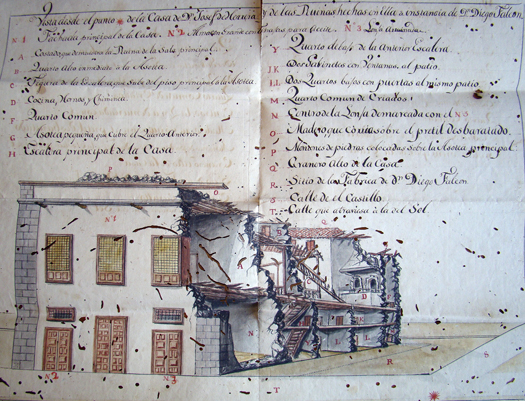 Vista desde el punto de la Casa de Dn. Josef de Herrera y de las Ruinas hechas en ella a instancia de Dn. Diego Falcon.
N1 Fachada principal de la Casa. N2 N3 Lonja Andamia
A Costado que demuestra la Ruina de la Sala principal.
B Quarto Alto inmediato a la Asotea
C Figura de la Escalera que sube del piso principal a la Asotea
D Cocina, Hornos, y Chimenea.
F Quarto Comun
G Asotea pequeña que cubre el Quarto Anterior.
H Escalera principal de la Casa.
Y Quarto debajo de la Anterior Escalera
J.K. con Ventanas, al patio.
Dos Quartos bajos con puertas al mismo patio
M Quarto Comun de Criados
N Centro de la Lonja demarcada con el N3
O Madero que sobre el pretil desbaratado.
P Montones de piedras colocadas sobre la Asotea principal.
Q Granero Alto de la Casa.
R Sitio de la Fabrica de Dn. Diego Falcon
S Calle de el Castillo.
T Calle que atraviesa à la del Sol.
P
O
Q
N1
D
N
L
N2
N3
T
R
S